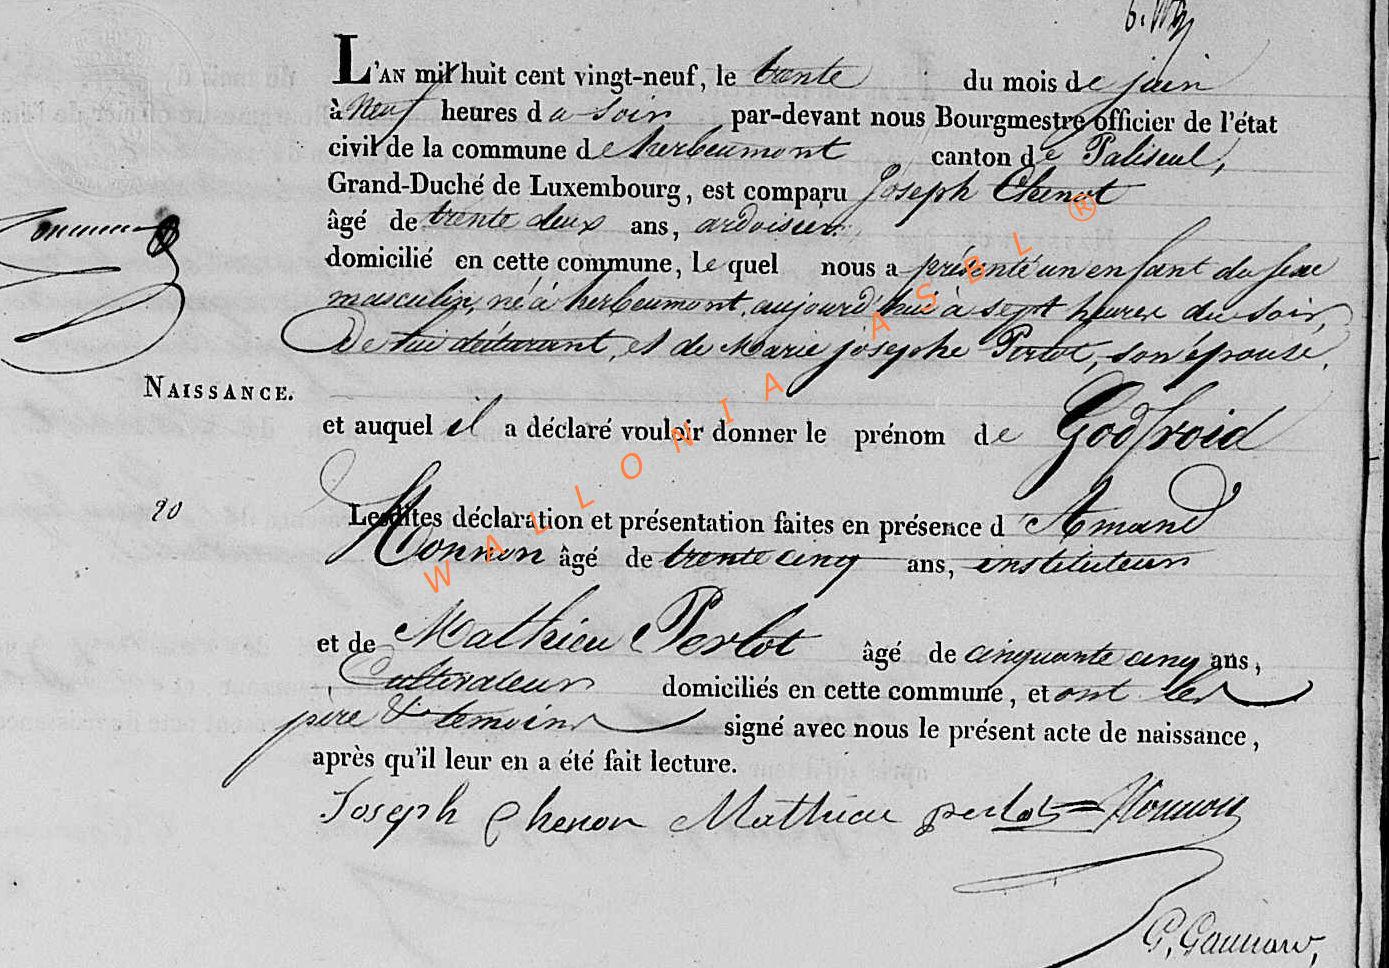 L'AN mil huit cent vingt-neuf, le trente du mois de juin
à neuf heures du soir par-devant nous Bourgmestre officier de l'état
civil de la commune de herbeumont canton de Paliseul,
Grand-Duché de Luxembourg, est comparu Joseph Chenot
âgé de trente deux ans, ardoisier
domicilié en cette commune, lequel nous a présenté un enfant du sexe
masculin, né à herbeumont, aujourd'hui à sept heures du soir,
De lui déclarant, et de Marie josephe Perlot, son épouse,
NAISSANCE.
et auquel il a déclaré vouloir donner le prénom de Godfroid
20
Lesdites déclaration et présentation faites en présence d'Amand
Honnon âgé de trente cinq ans, instituteur
et de Mathieu Perlot âgé de cinquante cinq ans,
Cultivateur domiciliés en cette commune, et ont les
père & temoins signé avec nous le présent acte de naissance,
après qu'il leur en a été fait lecture.
Joseph Chenon Mathieu perlot Honnon
WALLONIA ASBL ®